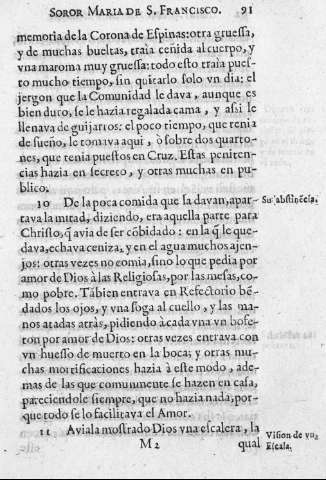 SOROR MARIA DE S. FRANCISCO. 91
memoria de la Corona de Espinas: otra gruessa,
y de muchas bueltas, traia ceñida al cuerpo, y
vna maroma muy gruessa: todo esto traia pues-
to mucho tiempo, sin quitarlo solo vn dia; el
jergon que la Comunidad le dava, aunque es
bien duro, se le hazia regalada cama, y assi le
llenava de guijarros: el poco tiempo, que tenia
de sueño, le tomava aqui, ò sobre dos quarto-
nes, que tenia puestos en Cruz. Estas peniten-
cias hazia en secreto, y otras muchas en pu-
blico.
10 De la poca comida que la davan, apar-
tava la mitad, diziendo, era aquella parte para
Christo, q̃ avia de ser cõbidado: en la q̃ le que-
dava, echava ceniza, y en el agua muchos ajen-
jos: otras vezes no comia, sino lo que pedia por
amor de Dios à las Religiosas, por las mesas, co-
mo pobre. Tãbien entrava en Refectorio bẽ-
dados los ojos, y vna soga al cuello, y las ma-
nos atadas atràs, pidiendo à cada vna vn bofe-
ton por amor de Dios: otras vezes entrava con
vn huesso de muerto en la boca; y otras mu-
chas mortificaciones hazia à este modo, ade-
mas de las que comunmente se hazen en casa,
pareciendole siempre, que no hazia nada, por-
que todo se lo facilitava el Amor.
11 Aviala mostrado Dios vna escalera, la
M 2 qual
Su abstinẽcia.
Vision de vna
Escala.